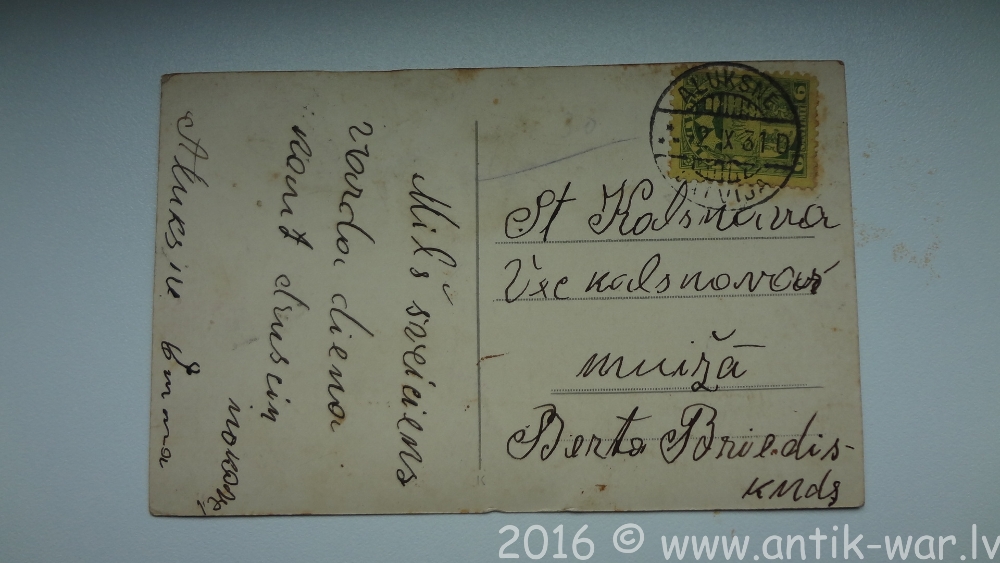 Mīļš sveiciens
vārda dienā
kaut drusciņ
nokavē
Alūksnē Emma
ALUKSNE
X 31 D
LATVIJA
St Kalsnava
Vec kalsnavas
muižā
Berta Briedis-
kndz
2016 © www.antik-war.lv